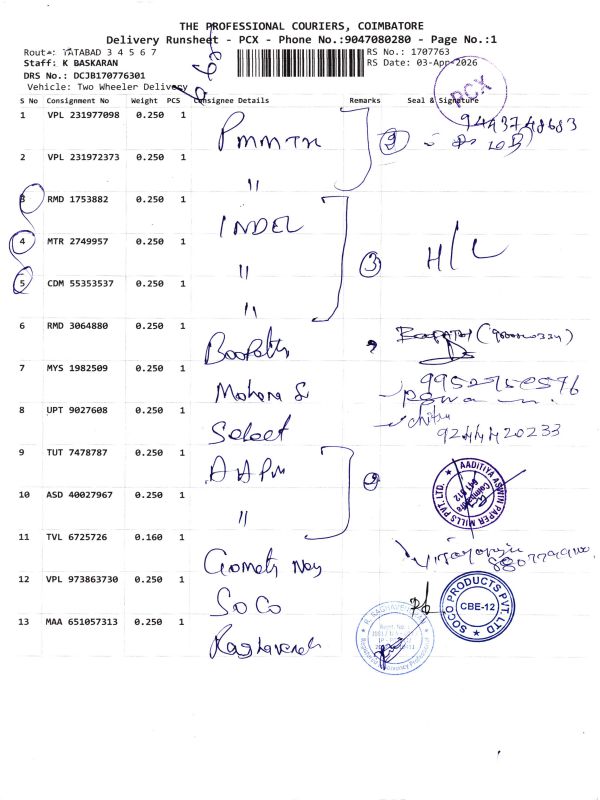 THE PROFESSIONAL COURIERS, COIMBATORE
Delivery Runsheet - PCX - Phone No.:9047080280 - Page No.:1
Route: TATABAD 3 4 5 6 7
Staff: K BASKARAN
DRS No.: DCJB170776301
Vehicle: Two Wheeler Delivery
RS No.: 1707763
RS Date: 03-Apr-2026
PCX
S No Consignment No Weight PCS Consignee Details Remarks Seal & Signature
1 VPL 231977098 0.250 1 PMMTN 9443748683
2 VPL 231972373 0.250 1 "
3 RMD 1753882 0.250 1 INDEL
4 MTR 2749957 0.250 1 " 3 H/L
5 CDM 55353537 0.250 1 "
6 RMD 3064880 0.250 1 Boopathy
7 MYS 1982509 0.250 1 Mohana S
8 UPT 9027608 0.250 1 Select
9244420233
9 TUT 7478787 0.250 1 AAPM
10 ASD 40027967 0.250 1 "
AADITIYA ASWIN PAPER MILLS PVT. LTD.
11 TVL 6725726 0.160 1
12 VPL 973863730 0.250 1 SOCO
SOCO PRODUCTS PVT. LTD
CBE-12
13 MAA 651057313 0.250 1 Raghavendr